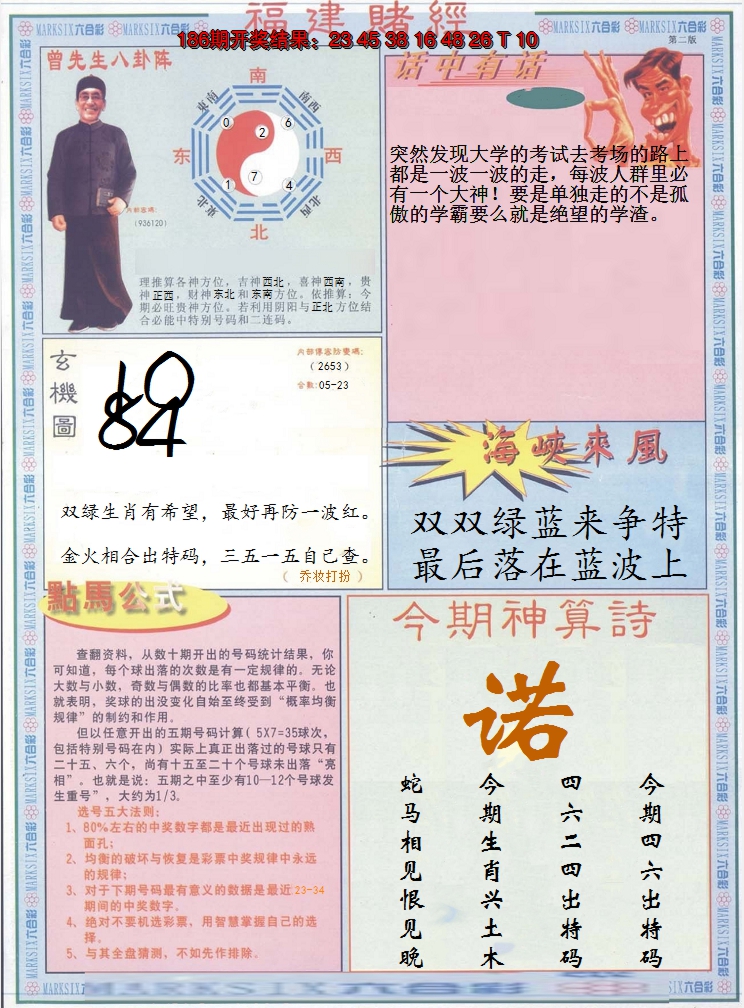 福建賭經
MARKSIX六合彩 MARKSIX六合彩 MARKSIX六合彩 MARKSIX六合彩
186期开奖结果：23 45 38 16 48 26 T 10
第二版
曾先生八卦阵
南
东南
西南
东
西
东北
西北
北
0
2
6
7
1
4
内部密碼:
(936120)
理推算各神方位，吉神西北，喜神西南，贵
神正西，财神东北和东南方位。依推算：今
期必旺贵神方位。若利用阴阳与正北方位结
合必能中特别号码和二连码。
话中有话
突然发现大学的考试去考场的路上
都是一波一波的走，每波人群里必
有一个大神！要是单独走的不是孤
傲的学霸要么就是绝望的学渣。
玄機圖
内部傳容防密碼:
(2653)
合数:05-23
双绿生肖有希望，最好再防一波红。
金火相合出特码，三五一五自己查。
（ 乔妆打扮 ）
海峽來風
双双绿蓝来争特
最后落在蓝波上
點馬公式
查翻资料，从数十期开出的号码统计结果，你
可知道，每个球出落的次数是有一定规律的。无论
大数与小数，奇数与偶数的比率也都基本平衡。也
就表明，奖球的出没变化自始至终受到“概率均衡
规律”的制约和作用。
但以任意开出的五期号码计算( 5X7=35球次，
包括特别号码在内) 实际上真正出落过的号球只有
二十五、六个，尚有十五至二十个号球未出落“亮
相”。也就是说：五期之中至少有10—12个号球发
生重号”，大约为1/3。
选号五大法则:
1、80%左右的中奖数字都是最近出现过的熟
面孔;
2、均衡的破坏与恢复是彩票中奖规律中永远
的规律;
3、对于下期号码最有意义的数据是最近23-34
期间的中奖数字。
4、绝对不要机选彩票，用智慧掌握自己的选
择。
5、与其全盘猜测，不如先作排除。
今期神算詩
诺
今期四六出特码
四六二四出特码
今期生肖兴土木
蛇马相见恨见晚